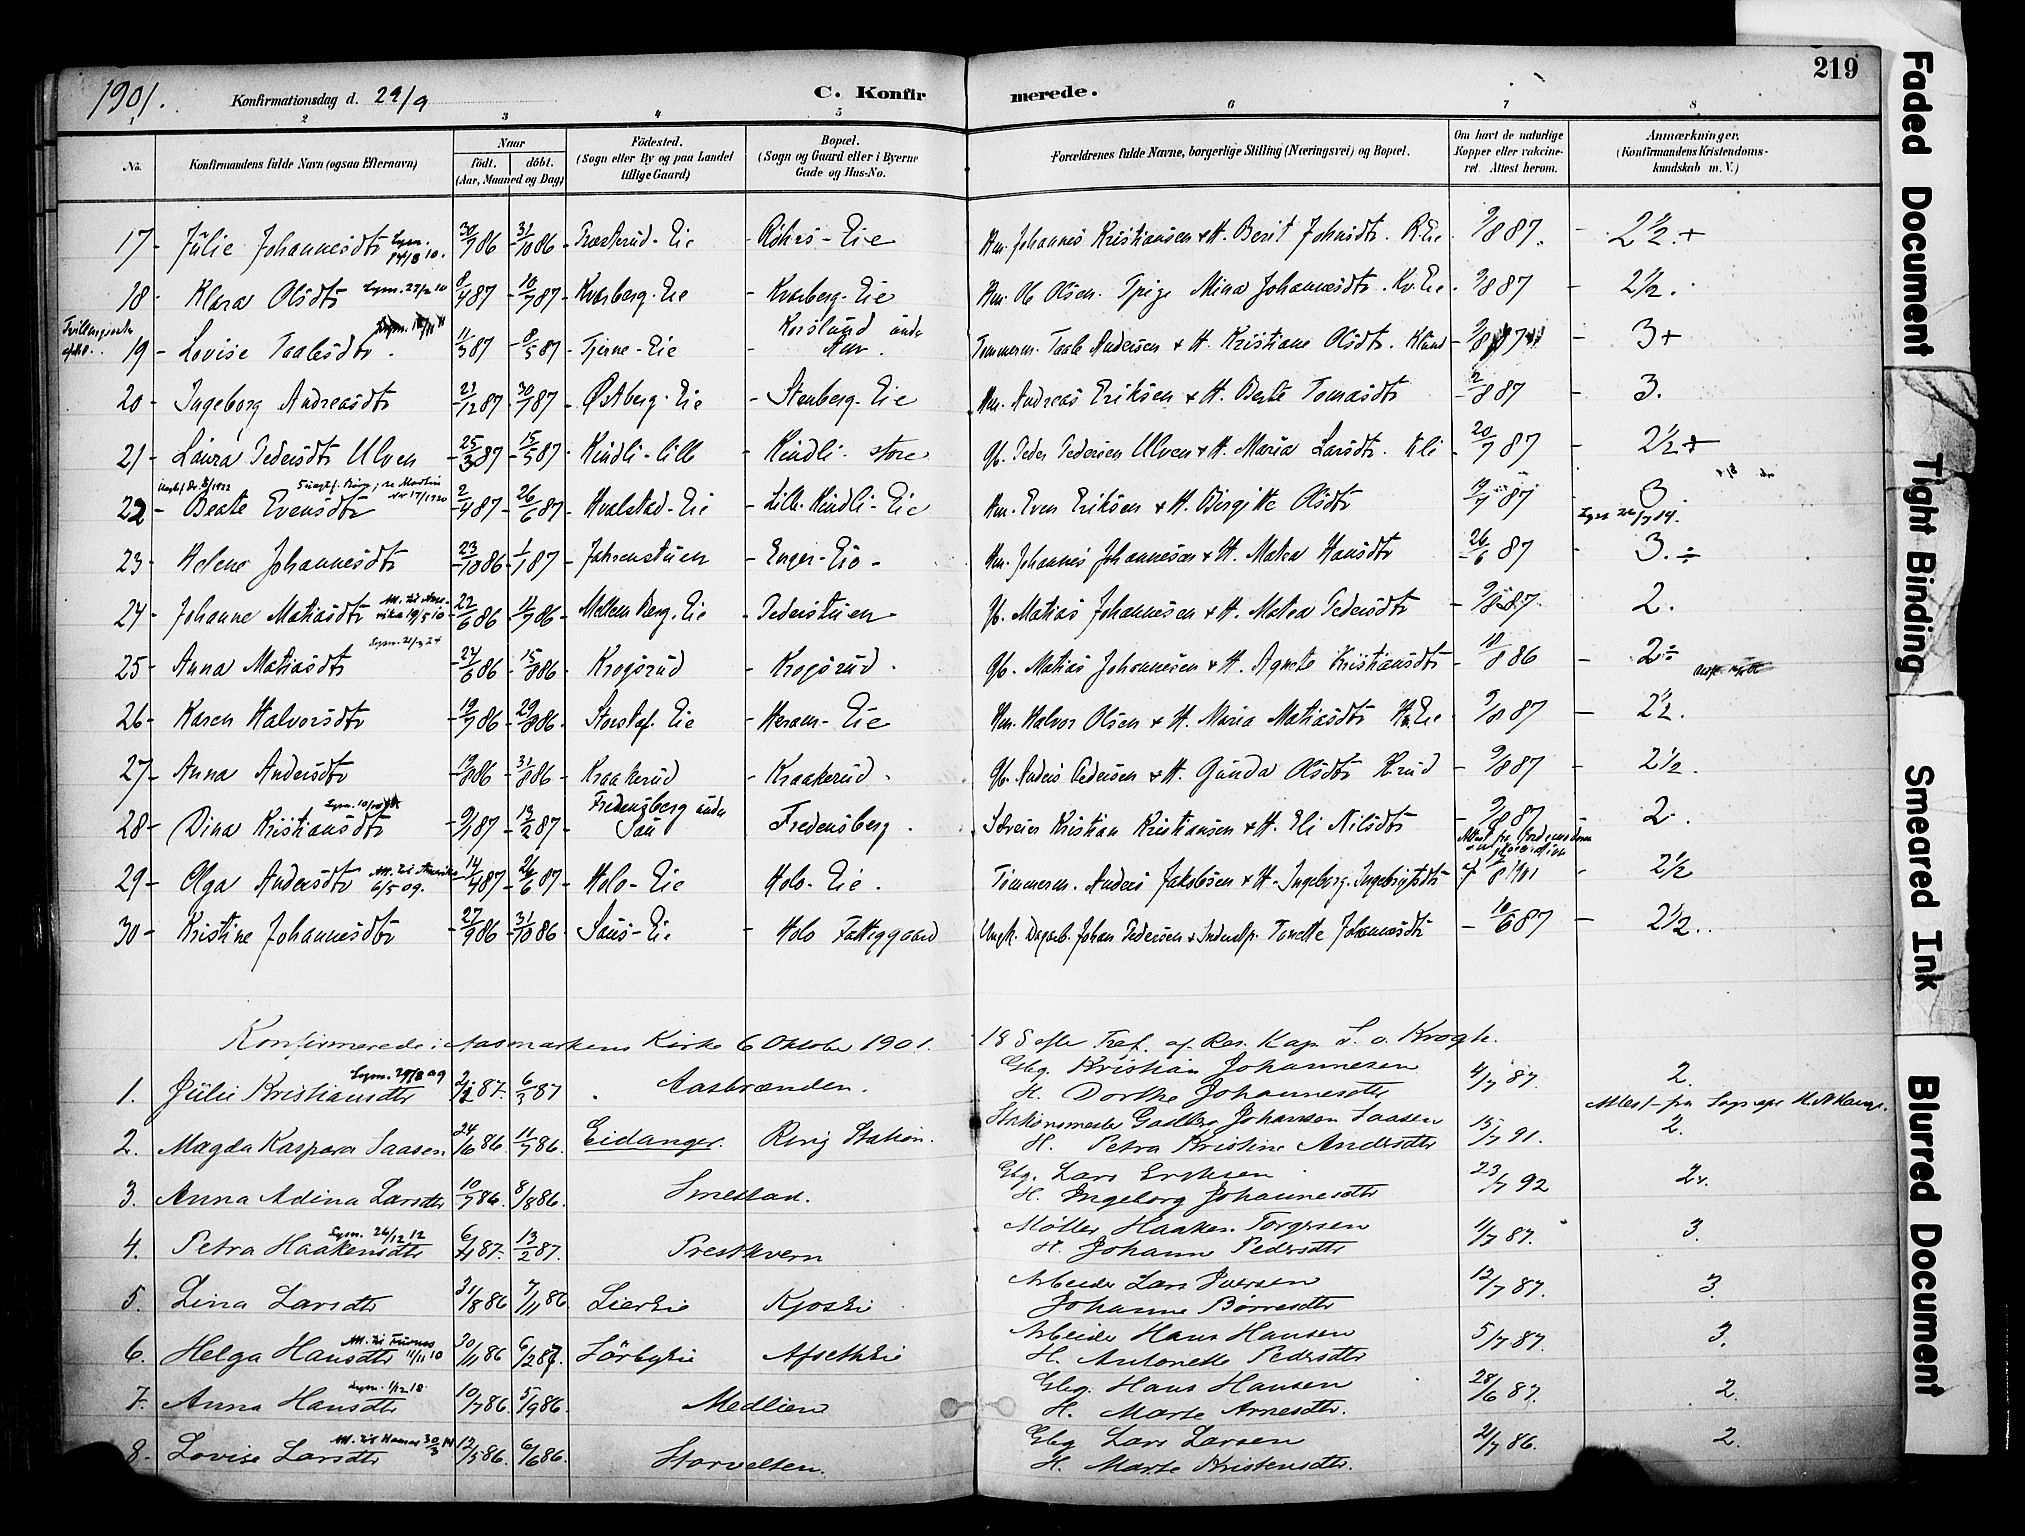 1901.
Konfirmationsdag d. 29/9
C. Konfirmerede.
219
1 2 3 4 5 6 7 8
No.
Konfirmandens fulde Navn (ogsaa Efternavn)
Naar födt. döbt. (Aar, Maaned og Dag)
Födested. (Sogn eller By og paa Landet tillige Gaard)
Bopæl. (Sogn og Gaard eller i Byerne Gade og Hus-No.
Forældrenes fulde Navne, borgerlige Stilling (Næringsvei) og Bopæl.
Om havt de naturlige Kopper eller vakcineret. Attest herom.
Anmærkninger. (Konfirmandens Kristendomskundskab m. V.)
17 - Julie Johannesdtr 30/9 86 31/10 86 - Eie - Eie Hm. Johannes Kristiansen & H. Berit Johnsdtr. R.Eie 9/8 87. - 2½.+
18 - Klara Olsdtr 8/4 87 10/7 87 Kvarberg-Eie - Kvarberg-Eie Hm. Ole Olsen. Pige Mina Johannesdtr. Kv.Eie 9/8 87 - 2½.
19 - Lovise Taalesdtr. 11/3 87 8/5 87 Tjerne-Eie - Korslund Tømmerm. Taale Andersen & H. Kristiane Olsdtr. - 3+
20 - Ingeborg Andreasdtr 30/7 87 Østberg-Eie - Stenberg-Eie Hm. Andreas Eriksen & H. Berte Tomasdtr 2/8 87 - 3.
21 - Laura Pedersdtr Ulven 25/3 87 15/5 87 Kindli-lille - Kindli store Gb. Peder Pedersen Ulven & H. Maria Larsdtr. Kli 20/7 87 - 2½+
22 - Beate Evensdtr 2/4 87 26/6 87 Hvalstad-Eie - Lille-Kindli-Eie Hm. Even Eriksen & H. Birgitte Olsdtr 19/7 87 3
23 - Helene Johannesdtr 23/10 86 1/1 87 - Enger-Eie - Hm. Johannes Johannesen & H. Matea Hansdtr 26/6 87 - 3.÷
24 - Johanne Matiasdtr Utt. til Amerika 19/5 10 22/6 86 11/9 86 Mellem Berg-Eie - Pederstuen Gb. Matias Johannesen & H. Matea Pedersdtr 9/8 87. 2.
25 - Anna Matiasdtr 24/6 86 15/8 86 Krogsrud - Krogsrud. Gb. Matias Johannesen & H. Agnete Kristiansdtr - 10/8 86 - 2÷
26 - Karen Halvorsdtr 19/7 86 29/8 86 Eie Heram-Eie Hm. Halvor Olsen & H. Maria Matiasdtr H.Eie 9/8 87 - 2½.
27 - Anna Andersdtr 31/8 86 Kraakerud - Kraakerud. Gb. Anders Pedersen & H. Gunda Olsdtr Krud - 9/8 87 - 2½.
28 - Dina Kristiansdtr 9/1 87 13/2 87 Fredensberg under Sau Fredensberg. Kristian Kristiansen & H. Eli Nilsdtr - 9/8 87 2.
29 - Olga Andersdtr Utt. til Amerika 6/5 09. 14/4 87 26/6 87 Holo-Eie Holo-Eie. Tømmerm. Anders Jakobsen & H. Ingeborg Ingebrigtsdtr 1901 - 2½
30 - Kristine Johannesdtr 27/9 86 31/10 86 Saus-Eie - Holo Fattiggaard Ungk. Dagarb. Johan Pedersen & Tonette Johannesdtr - 10/6 87 - 2½.
Konfirmerede i Aasmarkens Kirke 6 Oktober 1901. 18 S efter Tref. af Res. Kap. S. v. Krogh.
1. Julie Kristiansdtr Lysn. 29/8 09 6/3 87 Aasbrænden. Gbg. Kristian Johannesen H. Dorthe Johannesdtr 4/7 87. 2.
2. Magda Kaspara Saasen 24/6 86 11/7 86. Eidanger. Ring Station. Stationsmester Gudbrg Johansen Saasen H. Petra Kristine Andersdtr 15/7 91. 2.
3. Anna Adina Larsdtr 10/7 86. 8/8 86. Smestad. Gbg. Lars Eriksen H. Ingeborg Johannesdtr 23/7 92
4. Petra Haakensdtr Lysn. 26/12 12 6/1 87. 13/2 87. Prestkvern Møller Haaken Torgersen H. Johanne Pedersdtr 11/7 87. 3.
5. Lina Larsdtr 31/8 86 7/11 86 Liereie Kjoseie Arbeider Lars Iversen Johanne Børresdtr 12/7 87. 3.
6. Helga Hansdtr Utt. til Furnes 11/11 10 30/11 86 6/2 87. Sörbyeie Afsetheie Arbeider Hans Hansen H. Antonette Pedersdtr 5/7 87. 3.
7. Anna Hansdtr Lysn. 1/12 18 10/7 86 5/9 86. Medlien Gbg. Hans Hansen H. Marte Arnesdtr. 28/6 87. 2.
8. Lovise Larsdtr Utt. til Hamar 12/5 86. 6/6 86. Storvelten. Gbg Lars Larsen H. Marte Kristensdtr. 21/7 86. 2.
Faded Document
Tight Binding
Smeared Ink
Blurred Document